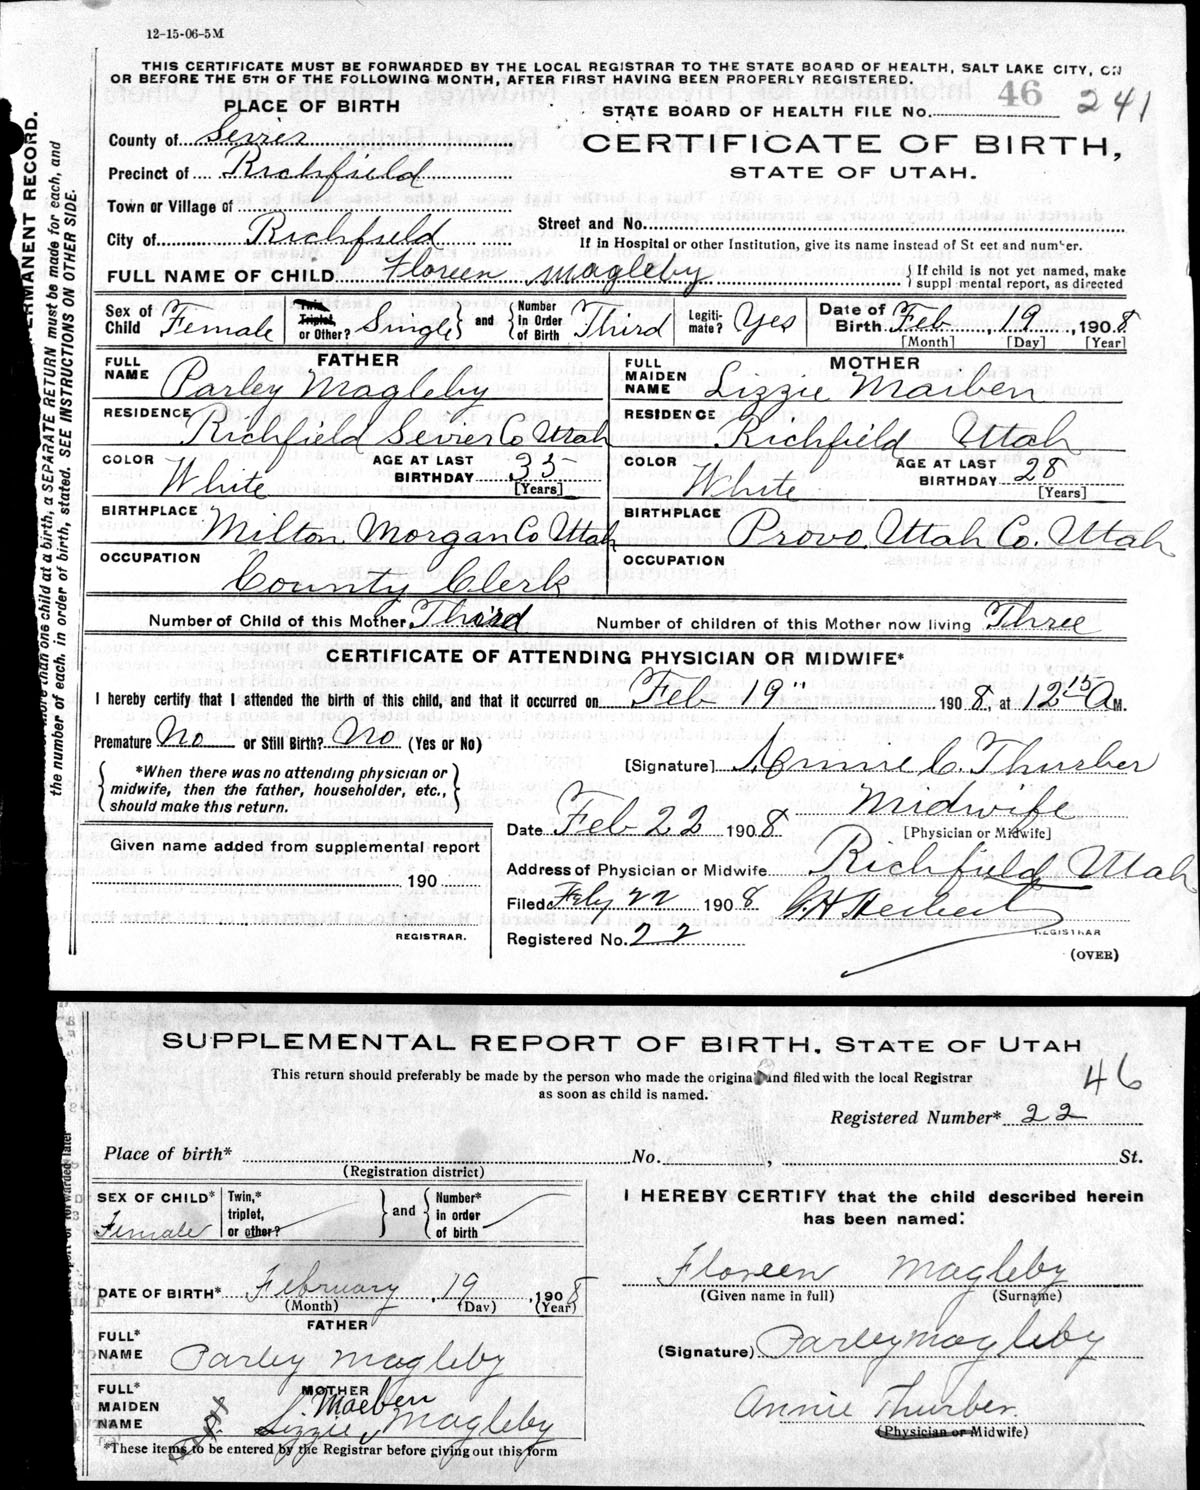 12-15-06-5M
THIS CERTIFICATE MUST BE FORWARDED BY THE LOCAL REGISTRAR TO THE STATE BOARD OF HEALTH, SALT LAKE CITY, ON
OR BEFORE THE 5TH OF THE FOLLOWING MONTH, AFTER FIRST HAVING BEEN PROPERLY REGISTERED.
PLACE OF BIRTH
STATE BOARD OF HEALTH FILE No. 46 241
County of Sevier
CERTIFICATE OF BIRTH,
STATE OF UTAH.
Precinct of Richfield
Town or Village of
Street and No.
City of Richfield
If in Hospital or other Institution, give its name instead of St eet and number.
FULL NAME OF CHILD Floreen Magleby
If child is not yet named, make
suppl mental report, as directed
Sex of Child Female
Twin, Triplet, or Other? Single and Number in Order of Birth Third
Legiti- mate? Yes
Date of Birth Feb, 19, 1908
[Month] [Day] [Year]
FATHER
FULL NAME Parley Magleby
RESIDENCE Richfield Sevier Co Utah
COLOR White
AGE AT LAST BIRTHDAY 35
[Years]
BIRTHPLACE Milton Morgan Co Utah
OCCUPATION County Clerk
MOTHER
FULL MAIDEN NAME Lizzie Maiben
RESIDENCE Richfield Utah
COLOR White
AGE AT LAST BIRTHDAY 28
[Years]
BIRTHPLACE Provo, Utah Co. Utah
OCCUPATION
Number of Child of this Mother Third
Number of children of this Mother now living Three
CERTIFICATE OF ATTENDING PHYSICIAN OR MIDWIFE*
I hereby certify that I attended the birth of this child, and that it occurred on Feb 19" 1908, at 12 15 A M.
Premature No or Still Birth? No (Yes or No)
*When there was no attending physician or
midwife, then the father, householder, etc.,
should make this return.
[Signature] Annie C. Thurber
Midwife
[Physician or Midwife]
Date Feb 22 1908
Address of Physician or Midwife Richfield Utah
Filed Feby 22 1908 Herbert
REGISTRAR
Registered No. 22
(OVER)
Given name added from supplemental report
190
REGISTRAR.
ERMANENT RECORD.
more than one child at a birth, a SEPARATE RETURN must be made for each, and
the number of each, in order of birth, stated. SEE INSTRUCTIONS ON OTHER SIDE.
SUPPLEMENTAL REPORT OF BIRTH, STATE OF UTAH
This return should preferably be made by the person who made the original and filed with the local Registrar
as soon as child is named.
46
Registered Number* 22
Place of birth* No. , St.
(Registration district)
SEX OF CHILD* Female
Twin,* triplet, or other? and Number* in order of birth
DATE OF BIRTH* February, 19, 1908
(Month) (Day) (Year)
FATHER
FULL* NAME Parley Magleby
MOTHER
Maeben
FULL* MAIDEN NAME Lizzie Magleby
*These items to be entered by the Registrar before giving out this form
I HEREBY CERTIFY that the child described herein
has been named:
Floreen Magleby
(Given name in full) (Surname)
(Signature) Parley Magleby
Annie Thurber.
(Physician or Midwife)